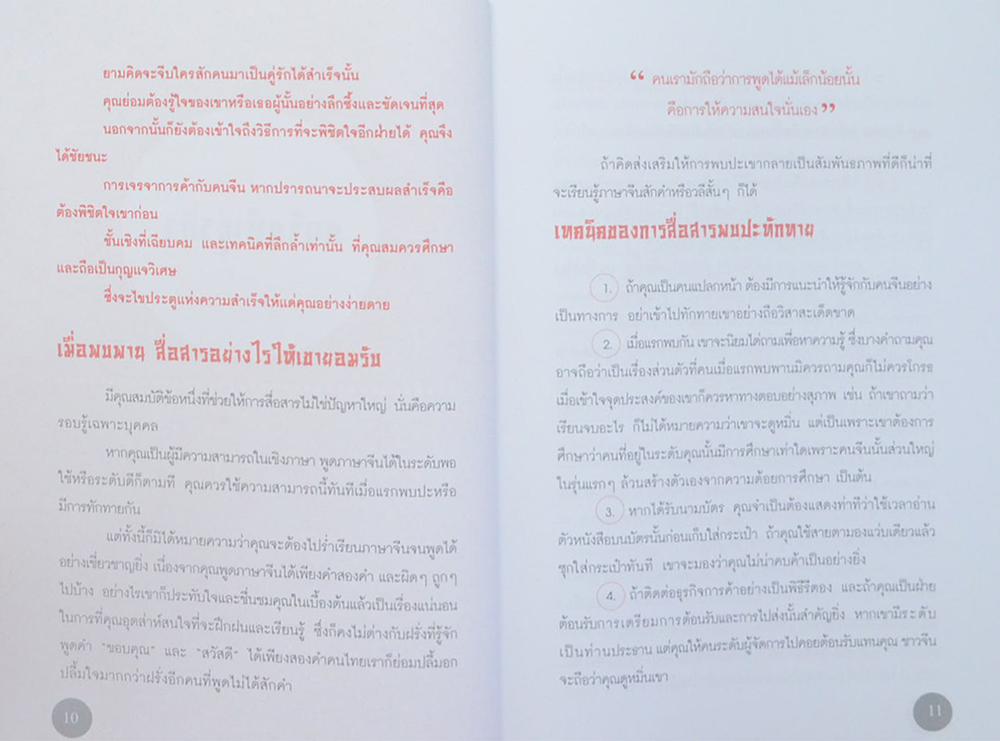 ยามคิดจะจีบใครสักคนมาเป็นคู่รักได้สำเร็จนั้น
คุณย่อมต้องรู้ใจของเขาหรือเธอผู้นั้นอย่างลึกซึ้งและชัดเจนที่สุด
นอกจากนั้นก็ยังต้องเข้าใจถึงวิธีการที่จะพิชิตใจอีกฝ่ายได้ คุณจึง
ได้ชัยชนะ
การเจรจาการค้ากับคนจีน หากปรารถนาจะประสบผลสำเร็จคือ
ต้องพิชิตใจเขาก่อน
ชั้นเชิงที่เฉียบคม และเทคนิคที่ลึกล้ำเท่านั้น ที่คุณสมควรศึกษา
และถือเป็นกุญแจวิเศษ
ซึ่งจะไขประตูแห่งความสำเร็จให้แด่คุณอย่างง่ายดาย
เมื่อพบพาน สื่อสารอย่างไรให้เขายอมรับ
มีคุณสมบัติข้อหนึ่งที่ช่วยให้การสื่อสารไม่ใช่ปัญหาใหญ่ นั่นคือความ
รอบรู้เฉพาะบุคคล
หากคุณเป็นผู้มีความสามารถในเชิงภาษา พูดภาษาจีนได้ในระดับพอ
ใช้หรือระดับดีก็ตามที คุณควรใช้ความสามารถนี้ทันทีเมื่อแรกพบปะหรือ
มีการทักทายกัน
แต่ทั้งนี้ก็มิได้หมายความว่าคุณจะต้องไปร่ำเรียนภาษาจีนจนพูดได้
อย่างเชี่ยวชาญยิ่ง เนื่องจากคุณพูดภาษาจีนได้เพียงคำสองคำ และผิดๆ ถูกๆ
ไปบ้าง อย่างไรเขาก็ประทับใจและชื่นชมคุณในเบื้องต้นแล้วเป็นเรื่องแน่นอน
ในการที่คุณอุตส่าห์สนใจที่จะฝึกฝนและเรียนรู้ ซึ่งก็คงไม่ต่างกับฝรั่งที่รู้จัก
พูดคำ "ขอบคุณ" และ "สวัสดี" ได้เพียงสองคำคนไทยเราก็ย่อมปลื้มอก
ปลื้มใจมากกว่าฝรั่งอีกคนที่พูดไม่ได้สักคำ
10
“ คนเรามักถือว่าการพูดได้แม้เล็กน้อยนั้น
คือการให้ความสนใจนั่นเอง ”
ถ้าคิดส่งเสริมให้การพบปะเขากลายเป็นสัมพันธภาพที่ดีก็น่าที่
จะเรียนรู้ภาษาจีนสักคำหรือวลีสั้นๆ ก็ได้
เทคนิคของการสื่อสารพบปะทักทาย
1. ถ้าคุณเป็นคนแปลกหน้า ต้องมีการแนะนำให้รู้จักกับคนจีนอย่าง
เป็นทางการ อย่าเข้าไปทักทายเขาอย่างถือวิสาสะเด็ดขาด
2. เมื่อแรกพบกัน เขาจะนิยมไต่ถามเพื่อหาความรู้ ซึ่งบางคำถามคุณ
อาจถือว่าเป็นเรื่องส่วนตัวที่คนเมื่อแรกพบพานมิควรถามคุณก็ไม่ควรโกรธ
เมื่อเข้าใจจุดประสงค์ของเขาก็ควรหาทางตอบอย่างสุภาพ เช่น ถ้าเขาถามว่า
เรียนจบอะไร ก็ไม่ได้หมายความว่าเขาจะดูหมิ่น แต่เป็นเพราะเขาต้องการ
ศึกษาว่าคนที่อยู่ในระดับคุณนั้นมีการศึกษาเท่าใดเพราะคนจีนนั้นส่วนใหญ่
ในรุ่นแรกๆ ล้วนสร้างตัวเองจากความด้อยการศึกษา เป็นต้น
3. หากได้รับนามบัตร คุณจำเป็นต้องแสดงท่าทีว่าใช้เวลาอ่าน
ตัวหนังสือบนบัตรนั้นก่อนเก็บใส่กระเป๋า ถ้าคุณใช้สายตามองแว่บเดียวแล้ว
ซุกใส่กระเป๋าทันที เขาจะมองว่าคุณไม่น่าคบค้าเป็นอย่างยิ่ง
4. ถ้าติดต่อธุรกิจการค้าอย่างเป็นพิธีรีตอง และถ้าคุณเป็นฝ่าย
ต้อนรับการเตรียมการต้อนรับและการไปส่งนั้นสำคัญยิ่ง หากเขามีระดับ
เป็นท่านประธาน แต่คุณให้คนระดับผู้จัดการไปคอยต้อนรับแทนคุณ ชาวจีน
จะถือว่าคุณดูหมิ่นเขา
11